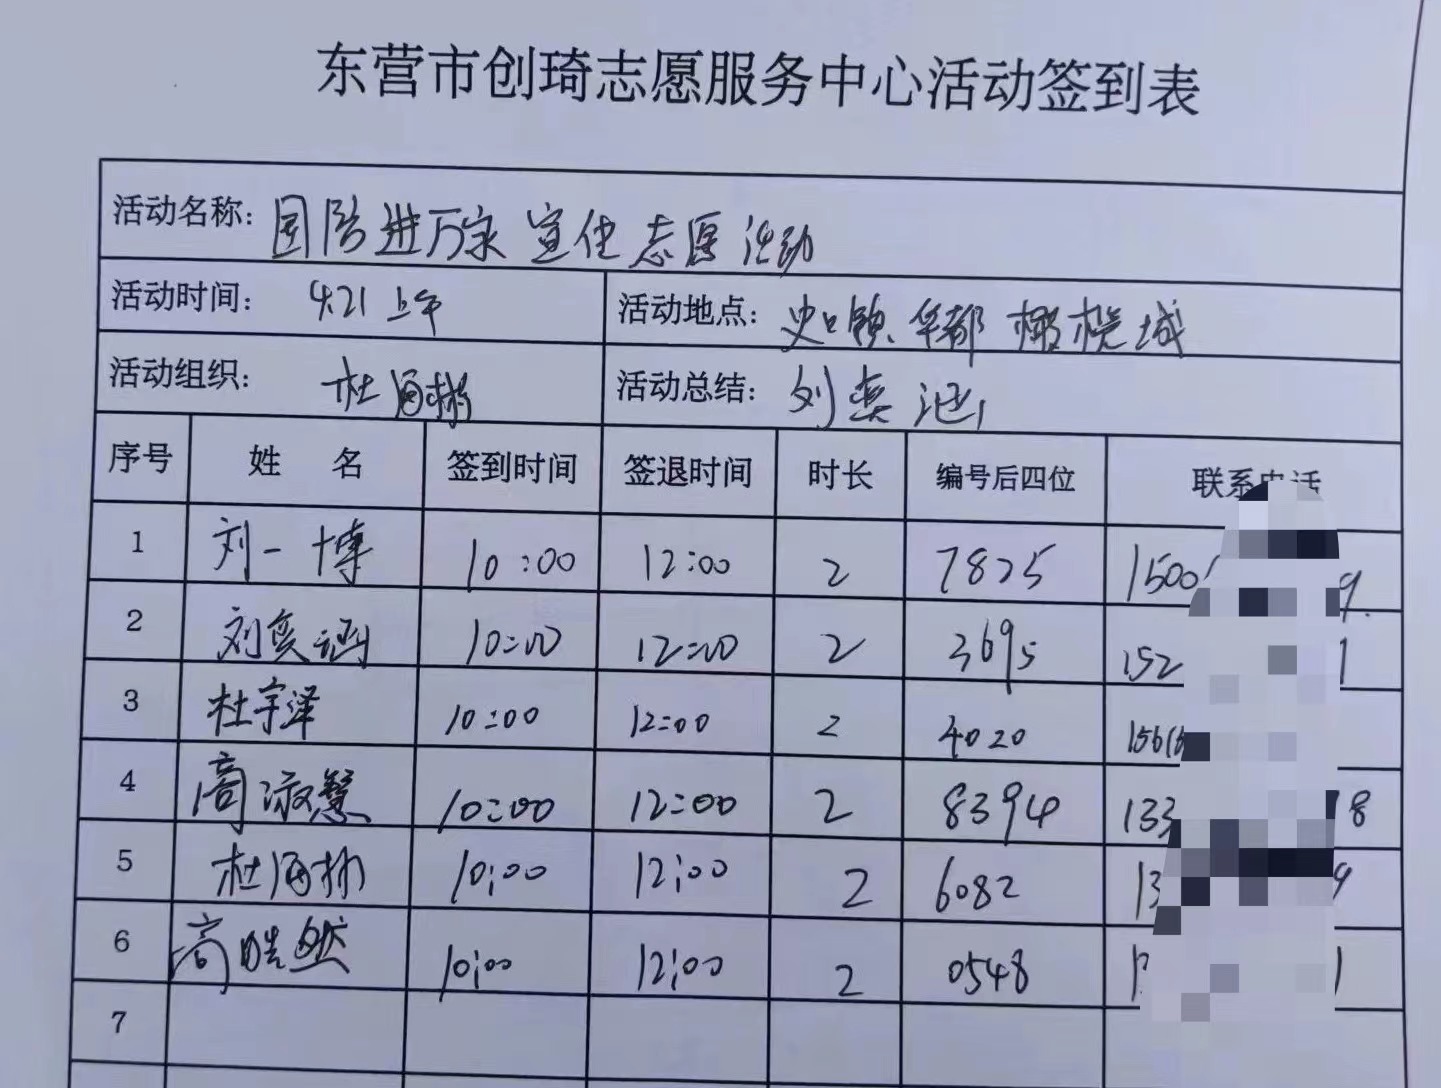 东营市创琦志愿服务中心活动签到表
活动名称: 国防进万家 宣传志愿活动
活动时间: 4.21 上午 活动地点: 史口镇 华都 橄榄城
活动组织: 杜海彬 活动总结: 刘奕涵
序号 姓 名 签到时间 签退时间 时长 编号后四位 联系电话
1 刘一博 10:00 12:00 2 7825 1500 9
2 刘奕涵 10:00 12:00 2 3695 152 1
3 杜宇泽 10:00 12:00 2 4020 156
4 高淑慧 10:00 12:00 2 8394 133 8
5 杜海彬 10:00 12:00 2 6082 13 9
6 高皓然 10:00 12:00 2 0548 1 1
7